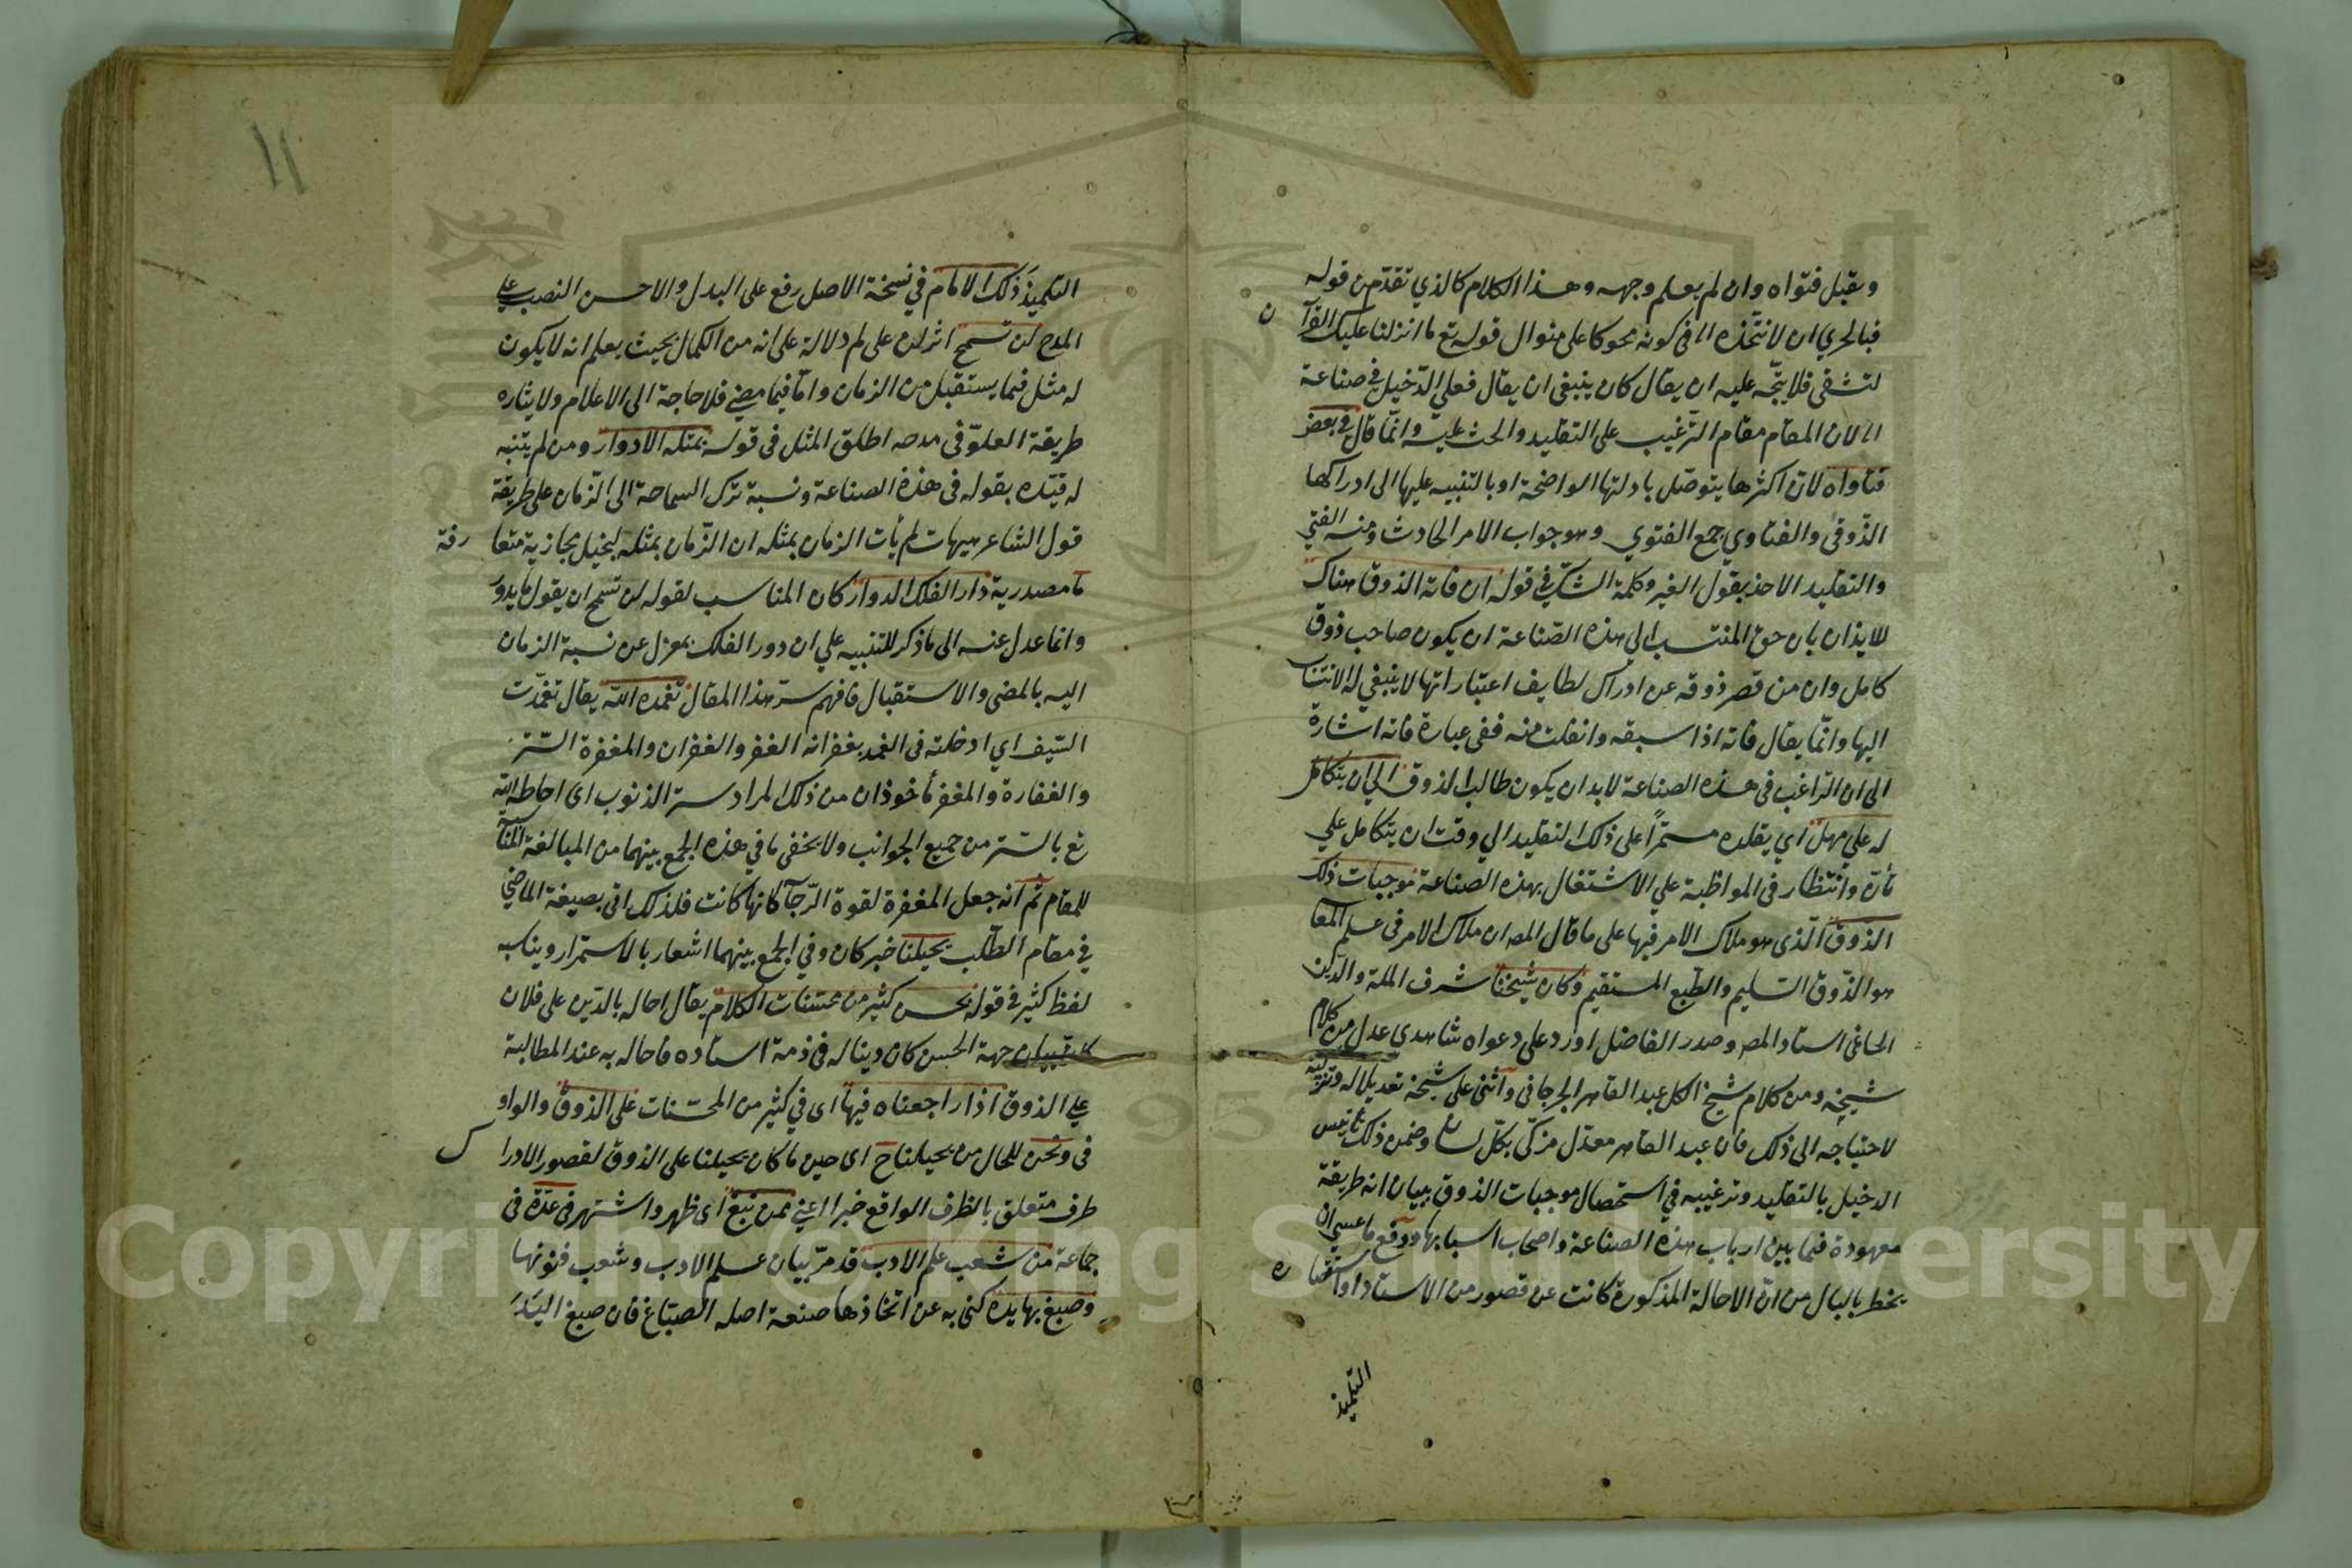 ويقبل فتواه وان لم يعلم وجهه وهذا الكلام كالذي تقدّم من قوله
فبالحري ان لا نتّخذه الى في كونه محوكا على منوال قوله تع ما انزلنا عليك القرآن
لتشقى فلا يتّجه عليه ان يقال كان ينبغي ان يقال فعلى الدّخيل في صناعة
الى لان المقام مقام التّرغيب على التقليد والحث عليه وانّما قال في بعض
فتاواه لان اكثرها يتوصّل بادلتها الواضحة او بالتنبيه عليها الى ادراكها
الذّوقي والفتاوي جمع الفتوي وهو جواب الامر الحادث ومنه الفتي
والتقليد الاخذ بقول الغير وكلمة الشّك في قوله ان فاته الذوق هناك
للايذان بان حق المنتسب الي هذه الصّناعة ان يكون صاحب ذوق
كامل وان من قصر ذوقه عن ادراك لطايف اعتباراتها لا ينبغي له الانتساب
اليها وانّما يقال فاته اذا سبقه وانفلت منه ففي عبارة فاته اشارة
الى ان الرّاغب في هذه الصناعة لابد ان يكون طالب الذوق الي ان يتكامل
له علي مهل اي يقلده مستمرّا على ذلك التقليد الي وقت ان يتكامل علي
تأن وانتظار في المواظبة علي الاشتغال بهذه الصناعة موجبات ذلك
الذوق الّذي هو ملاك الامر فيها على ما قال المصه ان ملاك الامر في علم المعا
هو الذّوق السّليم والطّبع المستقيم وكان شيخنا شرف الملة والدّين
الحاغي استاد المصه وصدر الفاضل اورد على دعواه شاهدي عدل من كلام
شيخه ومن كلام شيخ الكل عبد القاهر الجرجاني وأثنى على شيخه تعديلا له وتزكية
لاحتياجه الى ذلك فان عبد القاهر معدّل مزكّى بكلّ لسان وضمن ذلك تانيس
الدخيل بالتقليد وترغيبه في استحصال موجبات الذوق ببيان انه طريقة
معهودة فيما بين ارباب هذه الصناعة واصحاب اسبابها ودفع ما عسى ان
يخطر بالبال من انّ الاحالة المذكورة كانت عن قصور من الاستاد او استغنا ه
التلميذ
١١
التلميذ ذلك الامام في نسخة الاصل رفع على البدل والاحسن النصب علي
المدح لن تسمح اثر لن على لم دلالة على انه من الكمال بحيث يعلم انه لا يكون
له مثل فيما يستقبل من الزمان واما فيما مضى فلا حاجة الى الاعلام ولايثاره
طريقة العلوّ في مدحه اطلق المثل في قوله بمثله الادوار ومن لم يتنبه
له قيّده بقوله في هذه الصناعة ونسبة ترك السماحة الى الزّمان على طريقة
قول الشاعر هيهات لم يأت الزمان بمثله ان الزّمان بمثله لبخيل مجازية متعا رفة
ما مصدرية دار الفلك الدوار كان المناسب لقوله لن تسمح ان يقول ما يدور
وانما عدل عنه الى ما ذكر للتنبيه علي ان دور الفلك بمعزل عن نسبة الزمان
اليه بالمضي والاستقبال فافهم سرّ هذا المقال تغمده الله يقال تغمّدت
السّيف اي ادخلته في الغمد بغفرانه الغفر والغفران والمغفرة السّتر
والغفارة والمغفر مأخوذان من ذلك المراد ستر الذنوب اي احاطه الله
تع بالستر من جميع الجوانب ولا يخفى ما في هذه الجمع بينهما من المبالغة المناسبة
للمقام ثم انه جعل المغفرة لقوة الرّجآ كانها كانت فلذلك اتي بصيغة الماضي
في مقام الطّلب يحيلنا خبر كان وفي الجمع بينهما اشعار بالاستمرار ويناسبه
لفظ كثير في قوله بحسن كثير من محسّنات الكلام يقال احاله بالدّين على فلان
جهة الحسن كان دينا له في ذمة استاده فاحاله به عند المطالبة
علي الذوق اذا راجعناه فيها اي في كثير من المحسّنات على الذوق والواو
في ونحن للحال من يحيلنا ح اى حين ما كان يحيلنا على الذوق لقصور الادرا ك
ظرف متعلق بالظرف الواقع خبرا اعني ممن نبغ اى ظهر واشتهر في عدّة في
جماعة من شعب علم الادب قد مرّ بيان علم الادب وشعب فنونها
وصبغ بها يده كنى به عن اتخاذها صنعة اصله الصبّاغ فان صبغ اليد